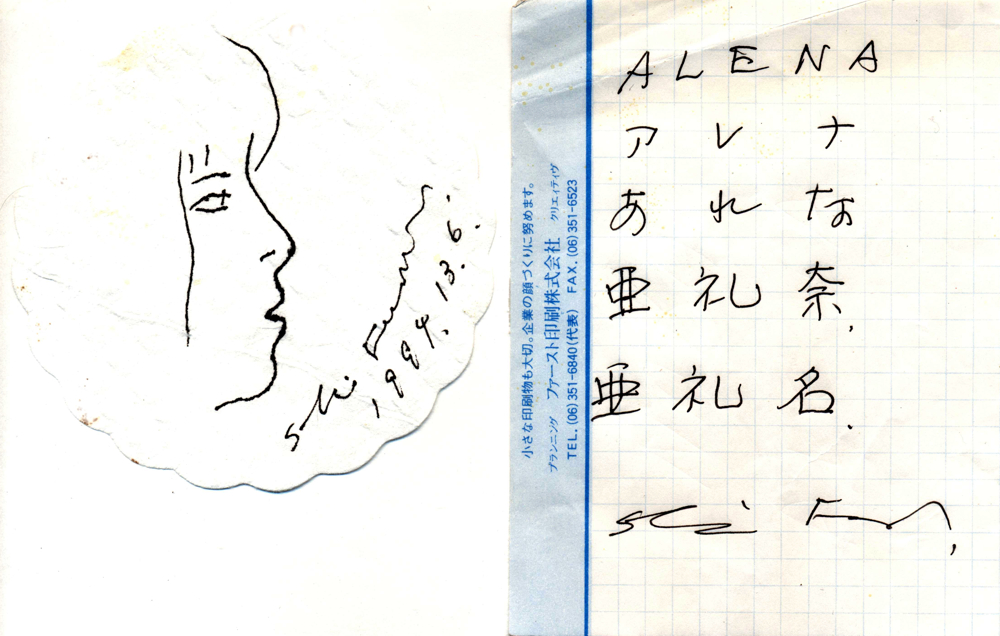 1994. 13. 6.
小さな印刷物も大切。企業の顔づくりに努めます。
プランニング ファースト印刷株式会社 クリェィティヴ
TEL.(06)351-6840(代表) FAX.(06)351-6523
ALENA
アレナ
あれな
亜礼奈,
亜礼名.